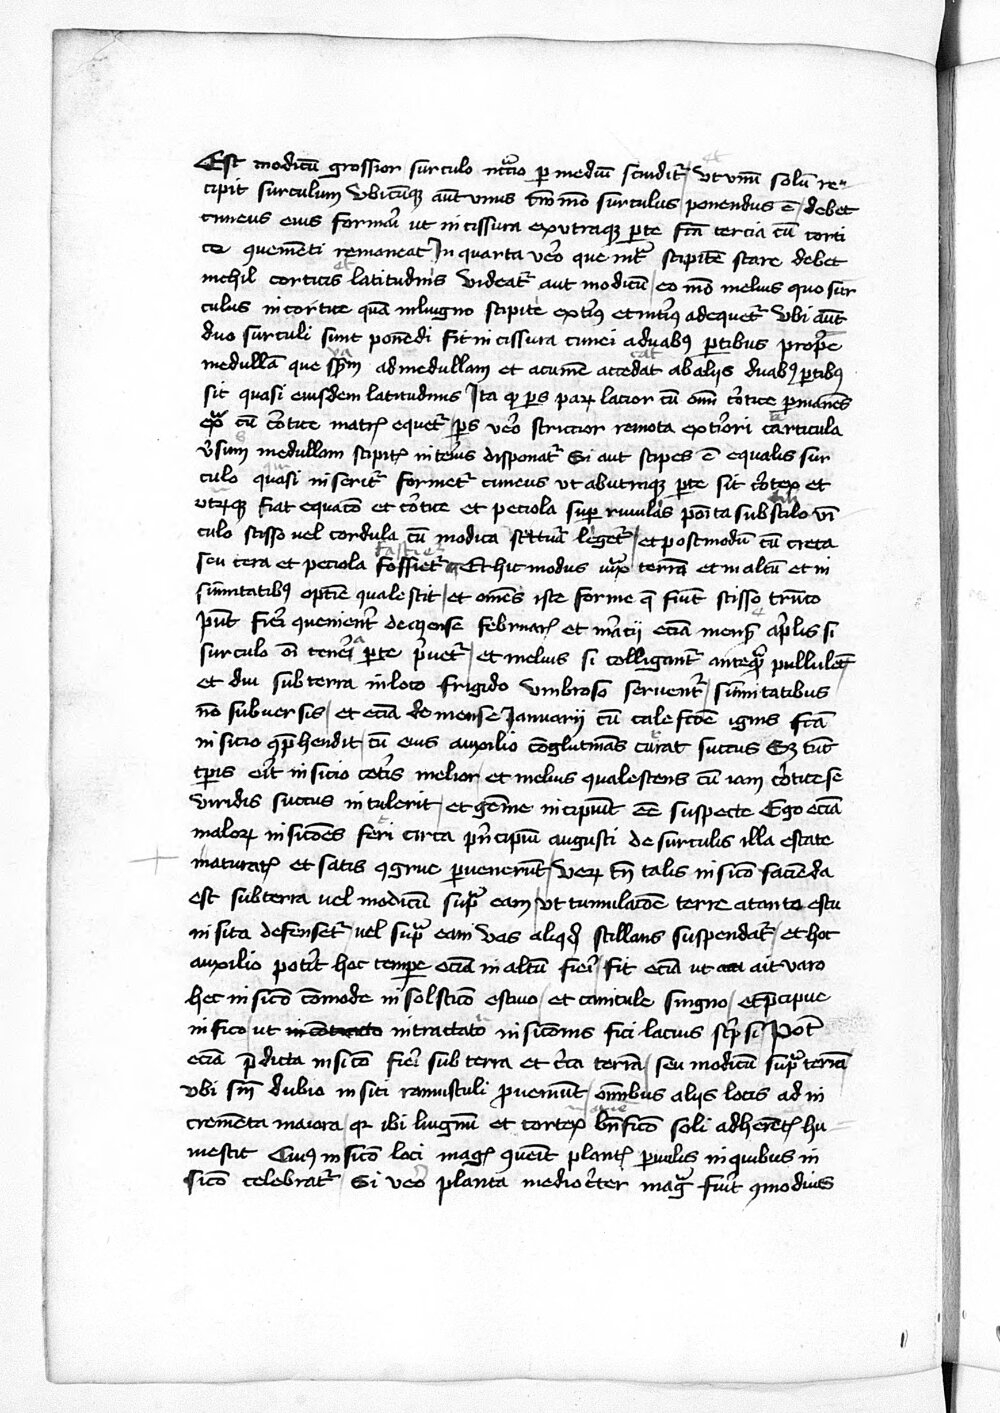 Est modicū grossior surculo nc̄cio ꝑ mediū scindit᷑ / ut vnū solū re⸗
cipit surculum Vbicūqꝫ aūt vnus tm̄mō surculus / ponendus ē / debet
cuneus eius formari ut in cissura ex vtraqꝫ ꝑte fc̄a tercia cū corti
ce quemēti remaneat In quarta vero que int᷑ scipitē stare debet
nichil corticis latitudinis Videat᷑ aut modicū / eo mō melius quo sur
culus in cortice quā in lingno scipite extiꝰ et intiꝰ adequet᷑ Vbi aūt
duo surculi sunt ponēdi fit in cissura cunei a duabꝰ ꝑtibus prope
medullā que sp̄m ad medullam et acumē accedat ab aliis duabꝰ ꝑtibꝰ
sit quasi eiusdem latitudinis Ita qꝫ ꝑs paꝝ lacior cū om̄i cortice ꝑmanēs
cū cortice matris equet᷑ / ꝑs vero strictior remota exteriori carticula
v̄sum medullam scipitis interius disponat᷑ Si aut scipes ē equalis sur
culo quasi inserit᷑ formet᷑ cuneus ut ab utraqꝫ ꝑte sit cortex et
utrīqꝫ fiat equacō et cortice et peciola suꝑ rimulas posita sub stilo vī
culo scisso uel cordula cū modica strictura liget᷑ / et postmodū cū creta
seu cera et peciola fossiet᷑ Et hic modus iuxͣ terrā et in altū et in
sūmitatibꝰ optīe qualescit / et om̄es iste forme q̄ fiūt scisso trūco
pn̄t fieri quenient᷑ de mense februarii et marcii eciā mens̄ aprilis si
surculo oī teneri ꝑte priuet᷑ / et melius si colligant᷑ anteq̄ pullulēt
et diu sub terra in loco frigido vmbroso seruent᷑ / sūmitatibus
nō subuersis / et eciā de mense Januarii cū calefcōe ignis fc̄a
insicio qp̄hendit / cū eius auxilio cōglutināns curat succus Sꝫ tūt
tp̄is erit insicio ceteris melior / et melius qualescens cū iam cortice se
viridis succus intulerit / et gēme incipiūt eē suspecte Ego eciā
maloꝝ insicōes feci circa principiū augusti de surculis illa estate
maturatis et satis ꝯgrue ꝑuenerūt / Veꝝ tn̄ talis insicō facieda
est sub terra uel modicū supͣ eam / ut tumulacōe terre a tanto estu
insita defenset᷑ / uel supͣ eam vas aliqđ stillans suspendat᷑ / et hoc
auxilio poterit hoc tempe eciā in altū fieri / fit eciā ut ait varo
hec insicō cōmode in solsticō estiuo / et canicule singno / et p̄cipue
in fico / ut intractatō insicionis fici lacius scp̄si / Pot᷑
eciā p̄dicta insicō fieri sub terra et circa terrā / seu modicū supͣ terrā
vbi sine dubio insiti ramusculi ꝓueniūt / om̄ibus aliis locis ad in
cremēta maiora / qꝛ ibi lingnū et cortex bn̄ficō soli adherētis hu
mescit Cuiꝰ insicō loci magis ꝯuēit plantis ꝑuulis in quibus in
sicō celebrat᷑ Si vero planta mediocriter magͣ fuit ꝯmodius